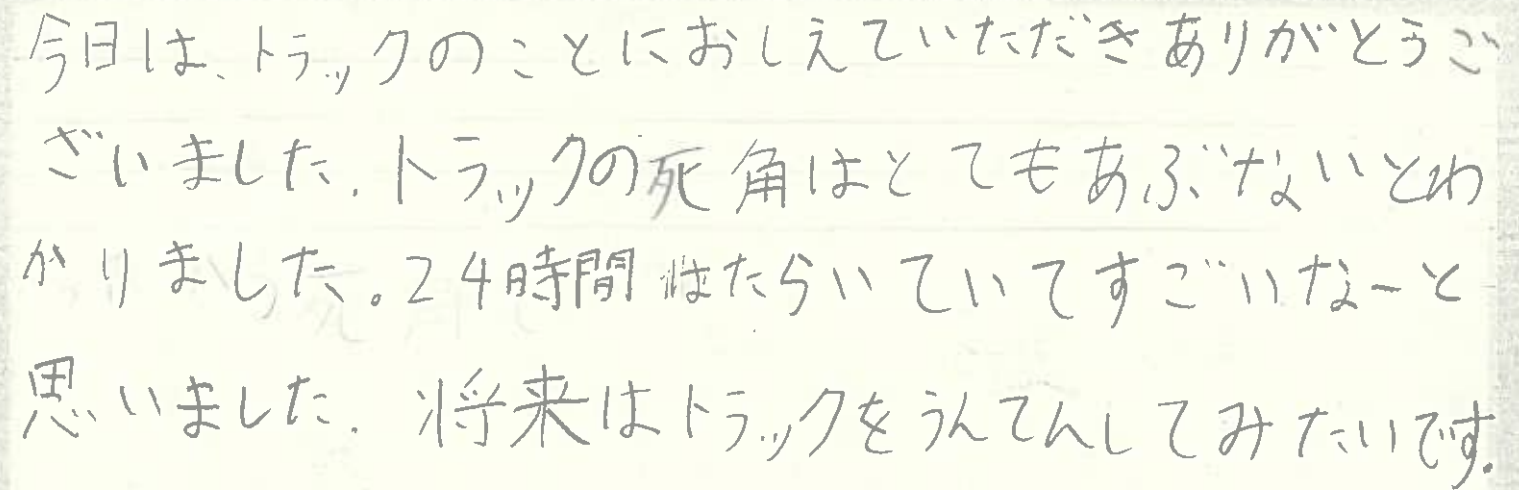 今日は、トラックのことにおしえていただきありがとうご
ざいました。トラックの死角はとてもあぶないとわ
かりました。24時間はたらいていてすごいなーと
思いました。将来はトラックをうんてんしてみたいです。